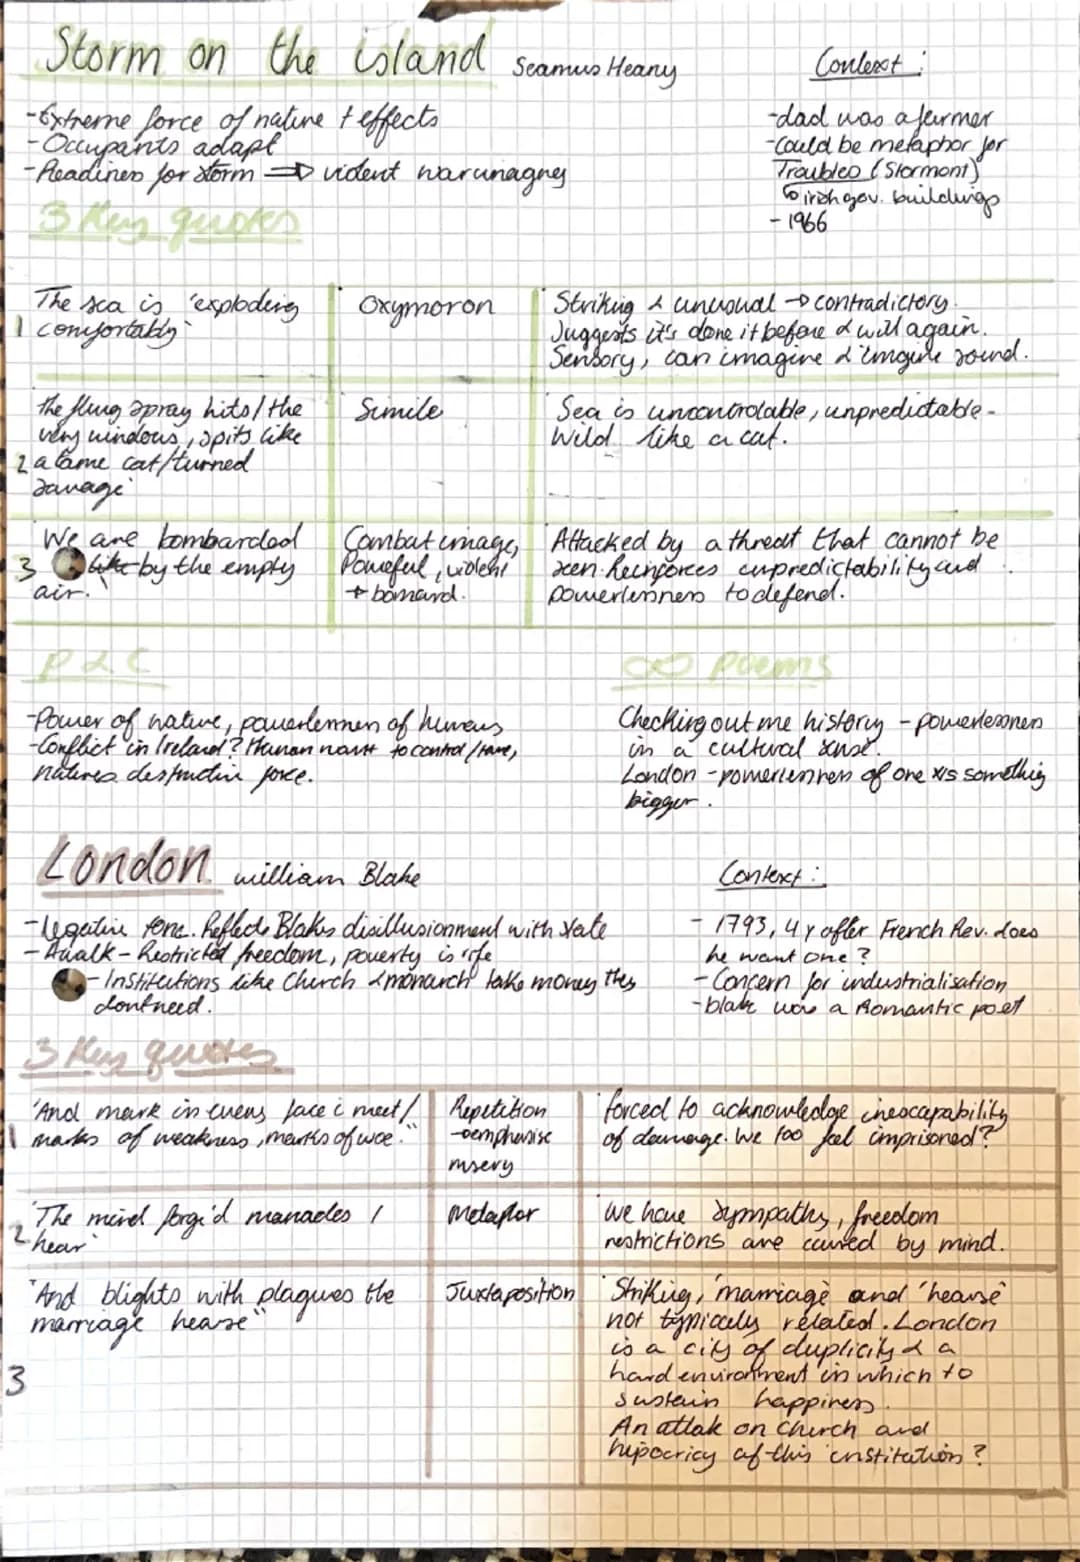 Storm on the island Seamus Heany
Context:
-Extreme force of nature + effects
-Occupants adapt
-Readiness for storm ⇒ violent war imagrey
-dad was a farmer
-could be metaphor for
Troubles (Stormont)
↳ irish gov. buildings
- 1966
3 Key quotes
1 The sea is 'exploding
comfortably'
Oxymoron
Striking & unusual → contradictory.
Suggests it's done it before & will again.
Sensory, can imagine & imagine sound.
2 'the flung spray hits/the
very windows, spits like
a tame cat/turned
savage'
Simile
Sea is uncontrolable, unpredictable-
wild like a cat.
3 'We are bombarded
like by the empty
air.'
Combat image,
Powerful, violent
+ bomard.
Attacked by a threat that cannot be
seen. Reinforces unpredictability and
powerlessness to defend.
P & C
-Power of nature, powerlessness of humans
-Conflict in Ireland? Human want to control/tame,
natures destructive force.
∞ poems
Checking out me history - powerlessness
in a cultural sense.
London - powerlessness of one v/s something
bigger.
London william Blake
Context:
-Negative tone. Reflects Blakes disillusionment with state
-A walk - Restricted freedom, poverty is rife
- Institutions like Church & monarch take money they
dont need.
- 1793, 4y after French Rev. does
he want one?
- Concern for industrialisation
-blake was a Romantic poet
3 Key quotes
1 'And mark in every face i meet/
marks of weakness, marks of woe."
Repetition
→emphasise
misery
forced to acknowledge inescapability
of damage. We too feel imprisoned?
2 'The mind forge'd manacles I
hear'
Metaphor
We have sympathy, freedom
restrictions are caused by mind.
3 "And blights with plagues the
marriage hearse"
Juxtaposition
Striking, 'marriage' and 'hearse'
not typically related. London
is a city of duplicity & a
hard environment in which to
sustain happiness.
An attak on church and
hipocricy of this institution?